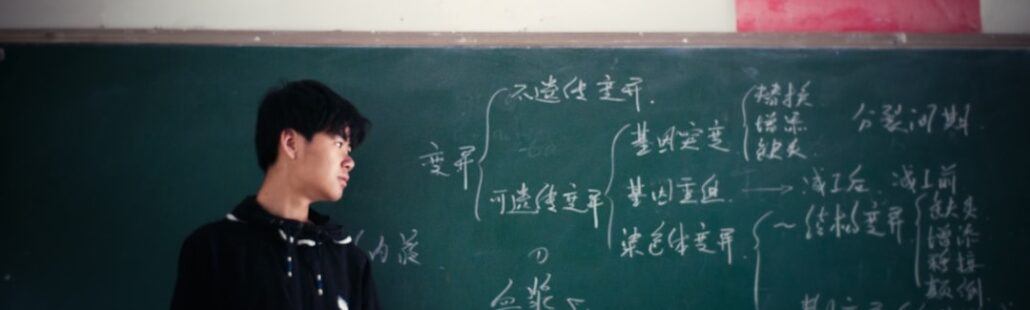 不遗传变异.
变异
可遗传变异
基因突变
替换
增添
缺失
分裂间期
基因重组 → 减I后. 减I前
染色体变异
~结构变异
缺失
增添
移接
颠倒
内